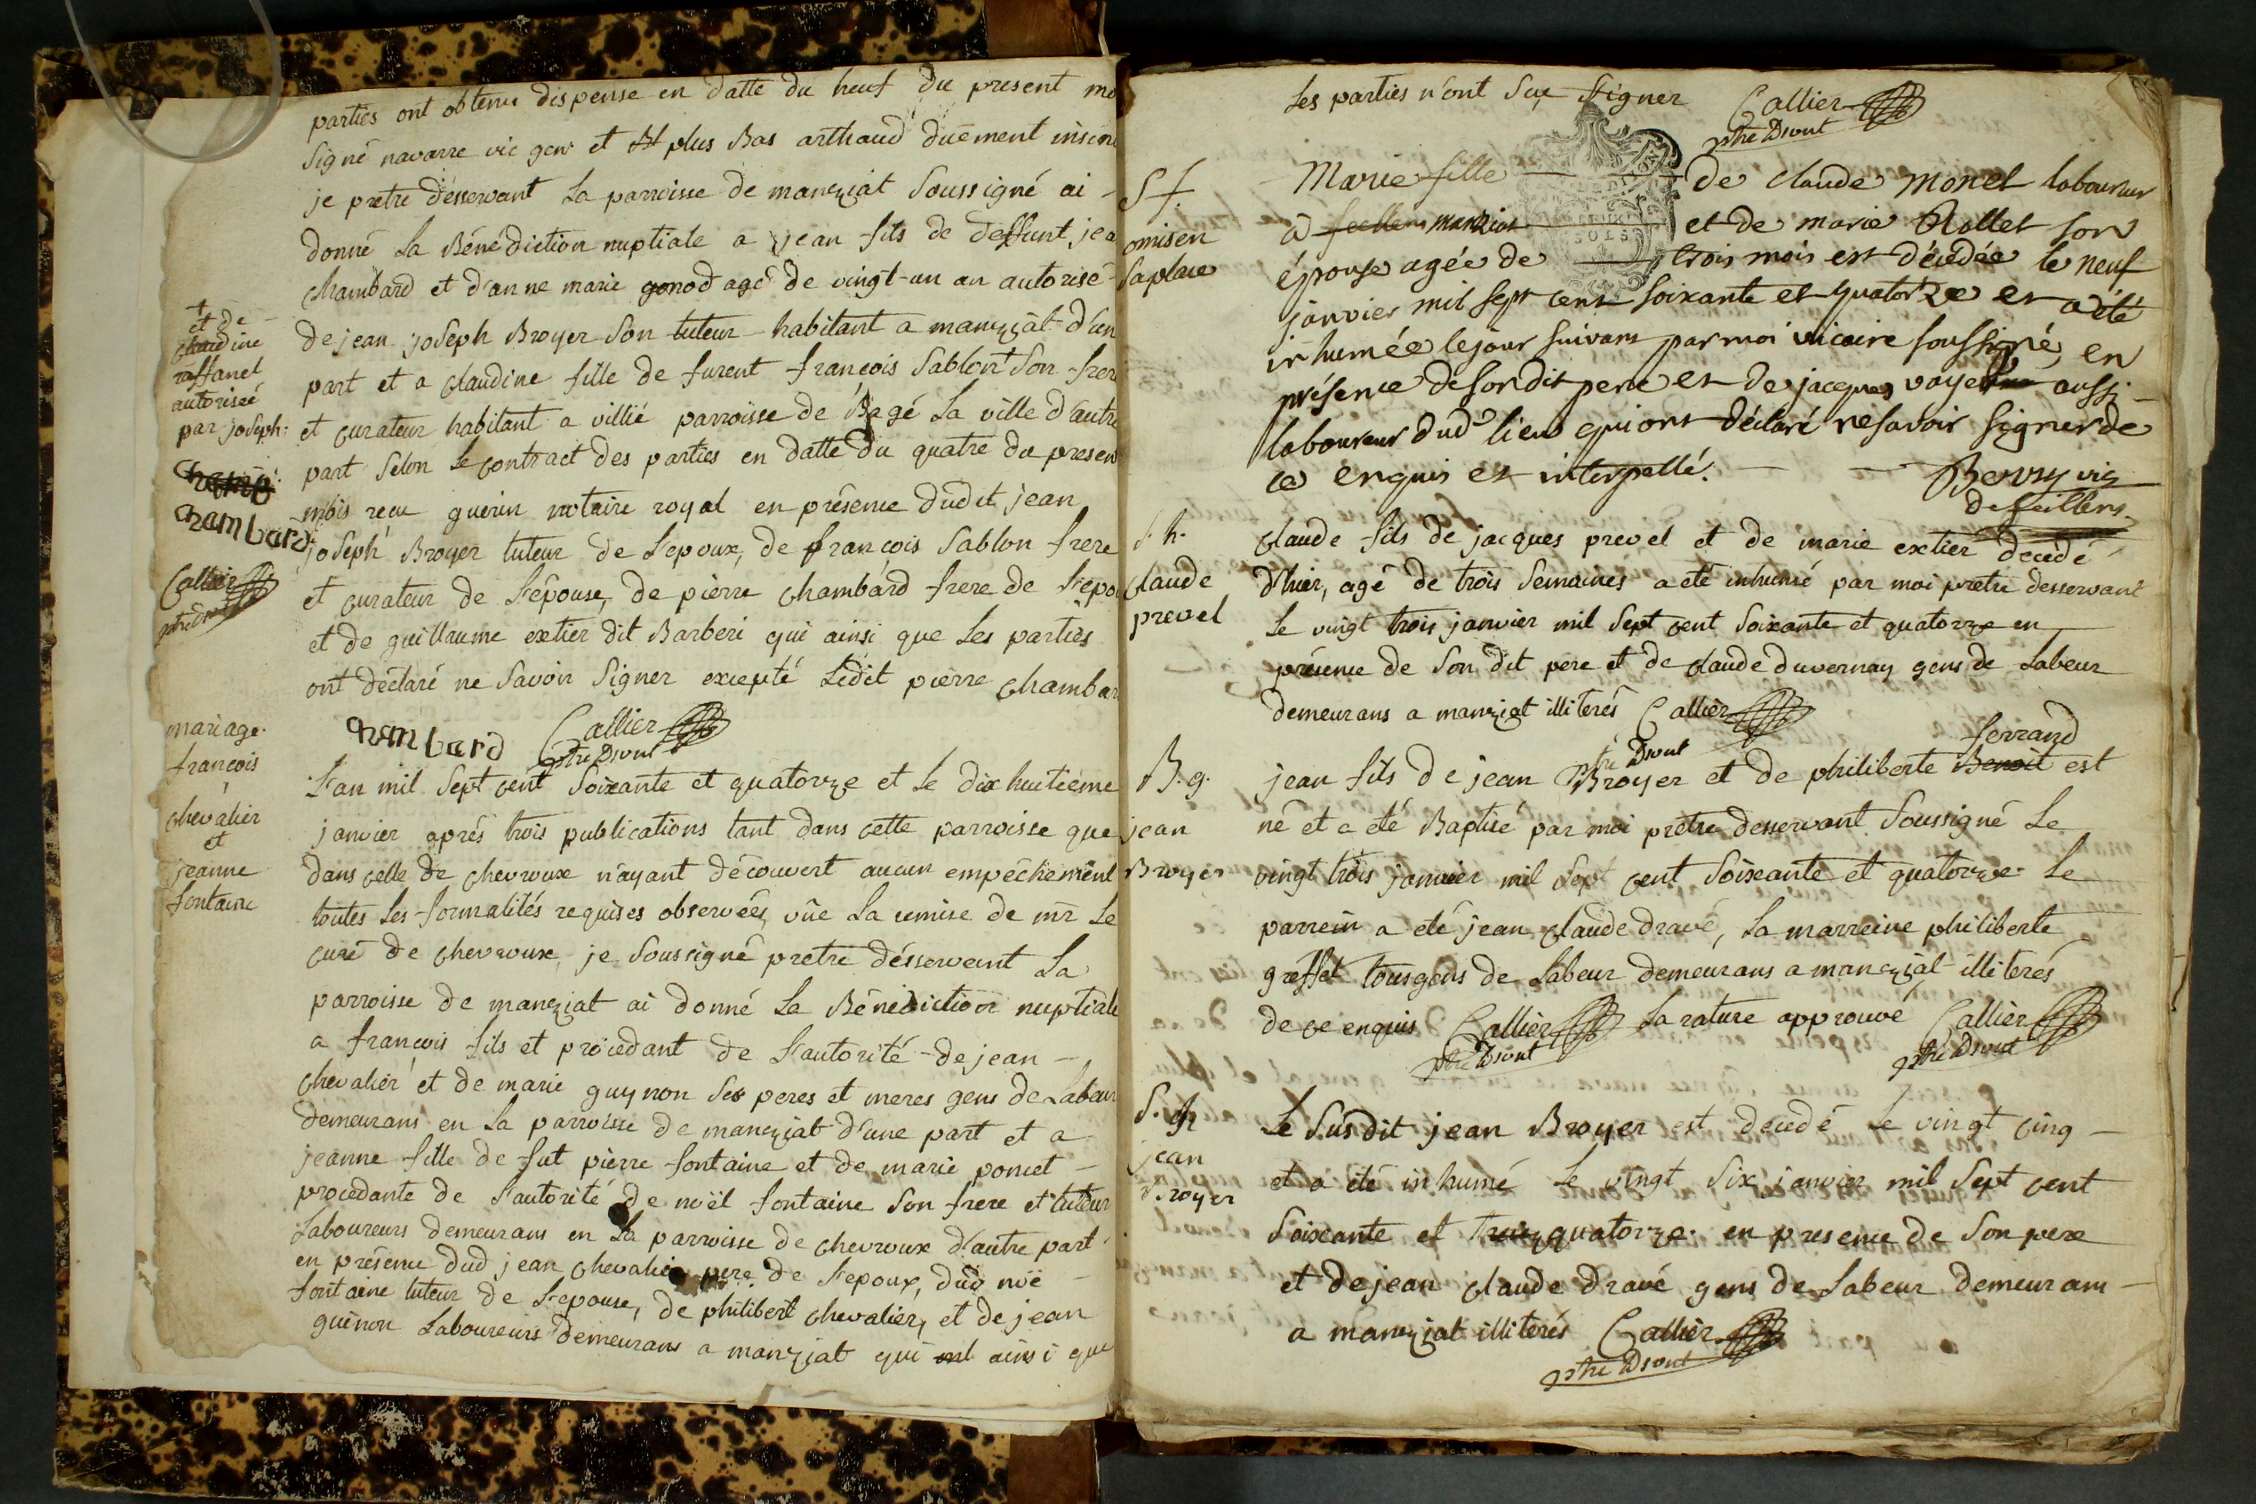 parties ont obtenu dispense en datte du neuf du present mo
signé navarre vic gen. et plus Bas arthaud duement insin
je pretre désservant La parroisse de manziat Soussigné ai
donné La Bénédiction nuptiale a jean fils de deffunt jea
chambard et d'anne marie gonod agé de vingt-un an autorisé
de jean joseph Broyer Son tuteur habitant a manziat d'un
part et a claudine fille de furent françois Sablon + Son frer
et curateur habitant a villié parroisse de Bagé La ville d'autre
part Selon Le contract des parties en datte du quatre du presen
mois recu guerin notaire royal en présence dudit jean
joseph Broyer tuteur de L'epoux, de françois Sablon frere
et curateur de L'épouse, de pierre chambard frere de L'epo
et de guillaume extier dit Barberi qui ainsi que Les parties
ont déclaré ne Savoir Signer excepté Ledit pierre chambar
chambard Callier
ptre Dsvnt
+
et de
claudine
raffanel
autorisée
par joseph
chambard
Callier
ptre Dsvnt
mariage
françois
chevalier
et
jeanne
fontaine
L'an mil Sept cent Soixante et quatorze et Le dix huitieme
janvier aprés trois publications tant dans cette parroisse que
dans celle de chevroux n'ayant découvert aucun empéchement
toutes Les formalités requises observées, vûe La remise de mr Le
curé de chevroux, je Soussigné pretre désservant La
parroisse de manziat ai donné La Bénédiction nuptiale
a françois fils et procedant de L'autorité de jean
chevalier et de marie guynon Ses peres et meres gens de Labeur
demeurans en La parroisse de manziat d'une part et a
jeanne fille de fut pierre fontaine et de marie poncet
procedante de L'autorité de noël fontaine Son frere et tuteur
Laboureurs demeurans en La parroisse de chevroux d'autre part
en présence dud jean chevalier pere de L'epoux, dud noë
fontaine tuteur de L'epouse, de philibert chevalier, et de jean
guenon Laboureurs demeurans a manziat qui ont ainsi que
Les parties n'ont Sue Signer Callier
ptre Dsvnt
S f.
omis en
sa place
Marie fille de claude monet laboureur
a feillens manziat et de marie Rollet son
épouse agée de trois mois est décedée le neuf
janvier mil sept cent soixante et quatorze et a été
inhumée le jour suivant par moi vicaire soussigné, en
présence de son dit pere et de jacques voye aussi
laboureur dud lieu qui ont déclaré ne savoir signer de
ce enquis et interpellé.
Berry vic
de feillens
S. h.
claude
prevel
claude fils de jacques prevel et de marie extier decedé
d'hier, agé de trois Semaines a été inhumé par moi pretre desservant
Le vingt trois janvier mil Sept cent Soixante et quatorze en
présence de Son dit pere et de claude duvernay gens de Labeur
demeurans a manziat illiterés Callier
ptre Dsvnt
B. g.
jean
Broyer
ferrand
jean fils de jean Broyer et de philiberte Benoit est
né et a été Baptisé par moi pretre desservant Soussigné Le
vingt trois janvier mil Sept cent Soixante et quatorze Le
parrein a été jean claude dravé, La marreine philiberte
greffet tous gens de Labeur demeurans a manziat illiterés
de ce enquis Callier La rature approuvé Callier
ptre Dsvnt ptre Dsvnt
S. h
jean
Broyer
Le Susdit jean Broyer est decedé Le vingt cinq
et a été inhumé Le vingt Six janvier mil Sept cent
Soixante et treiz quatorze en presence de Son pere
et de jean claude dravé gens de Labeur demeurans
a manziat illiterés Callier
ptre Dsvnt